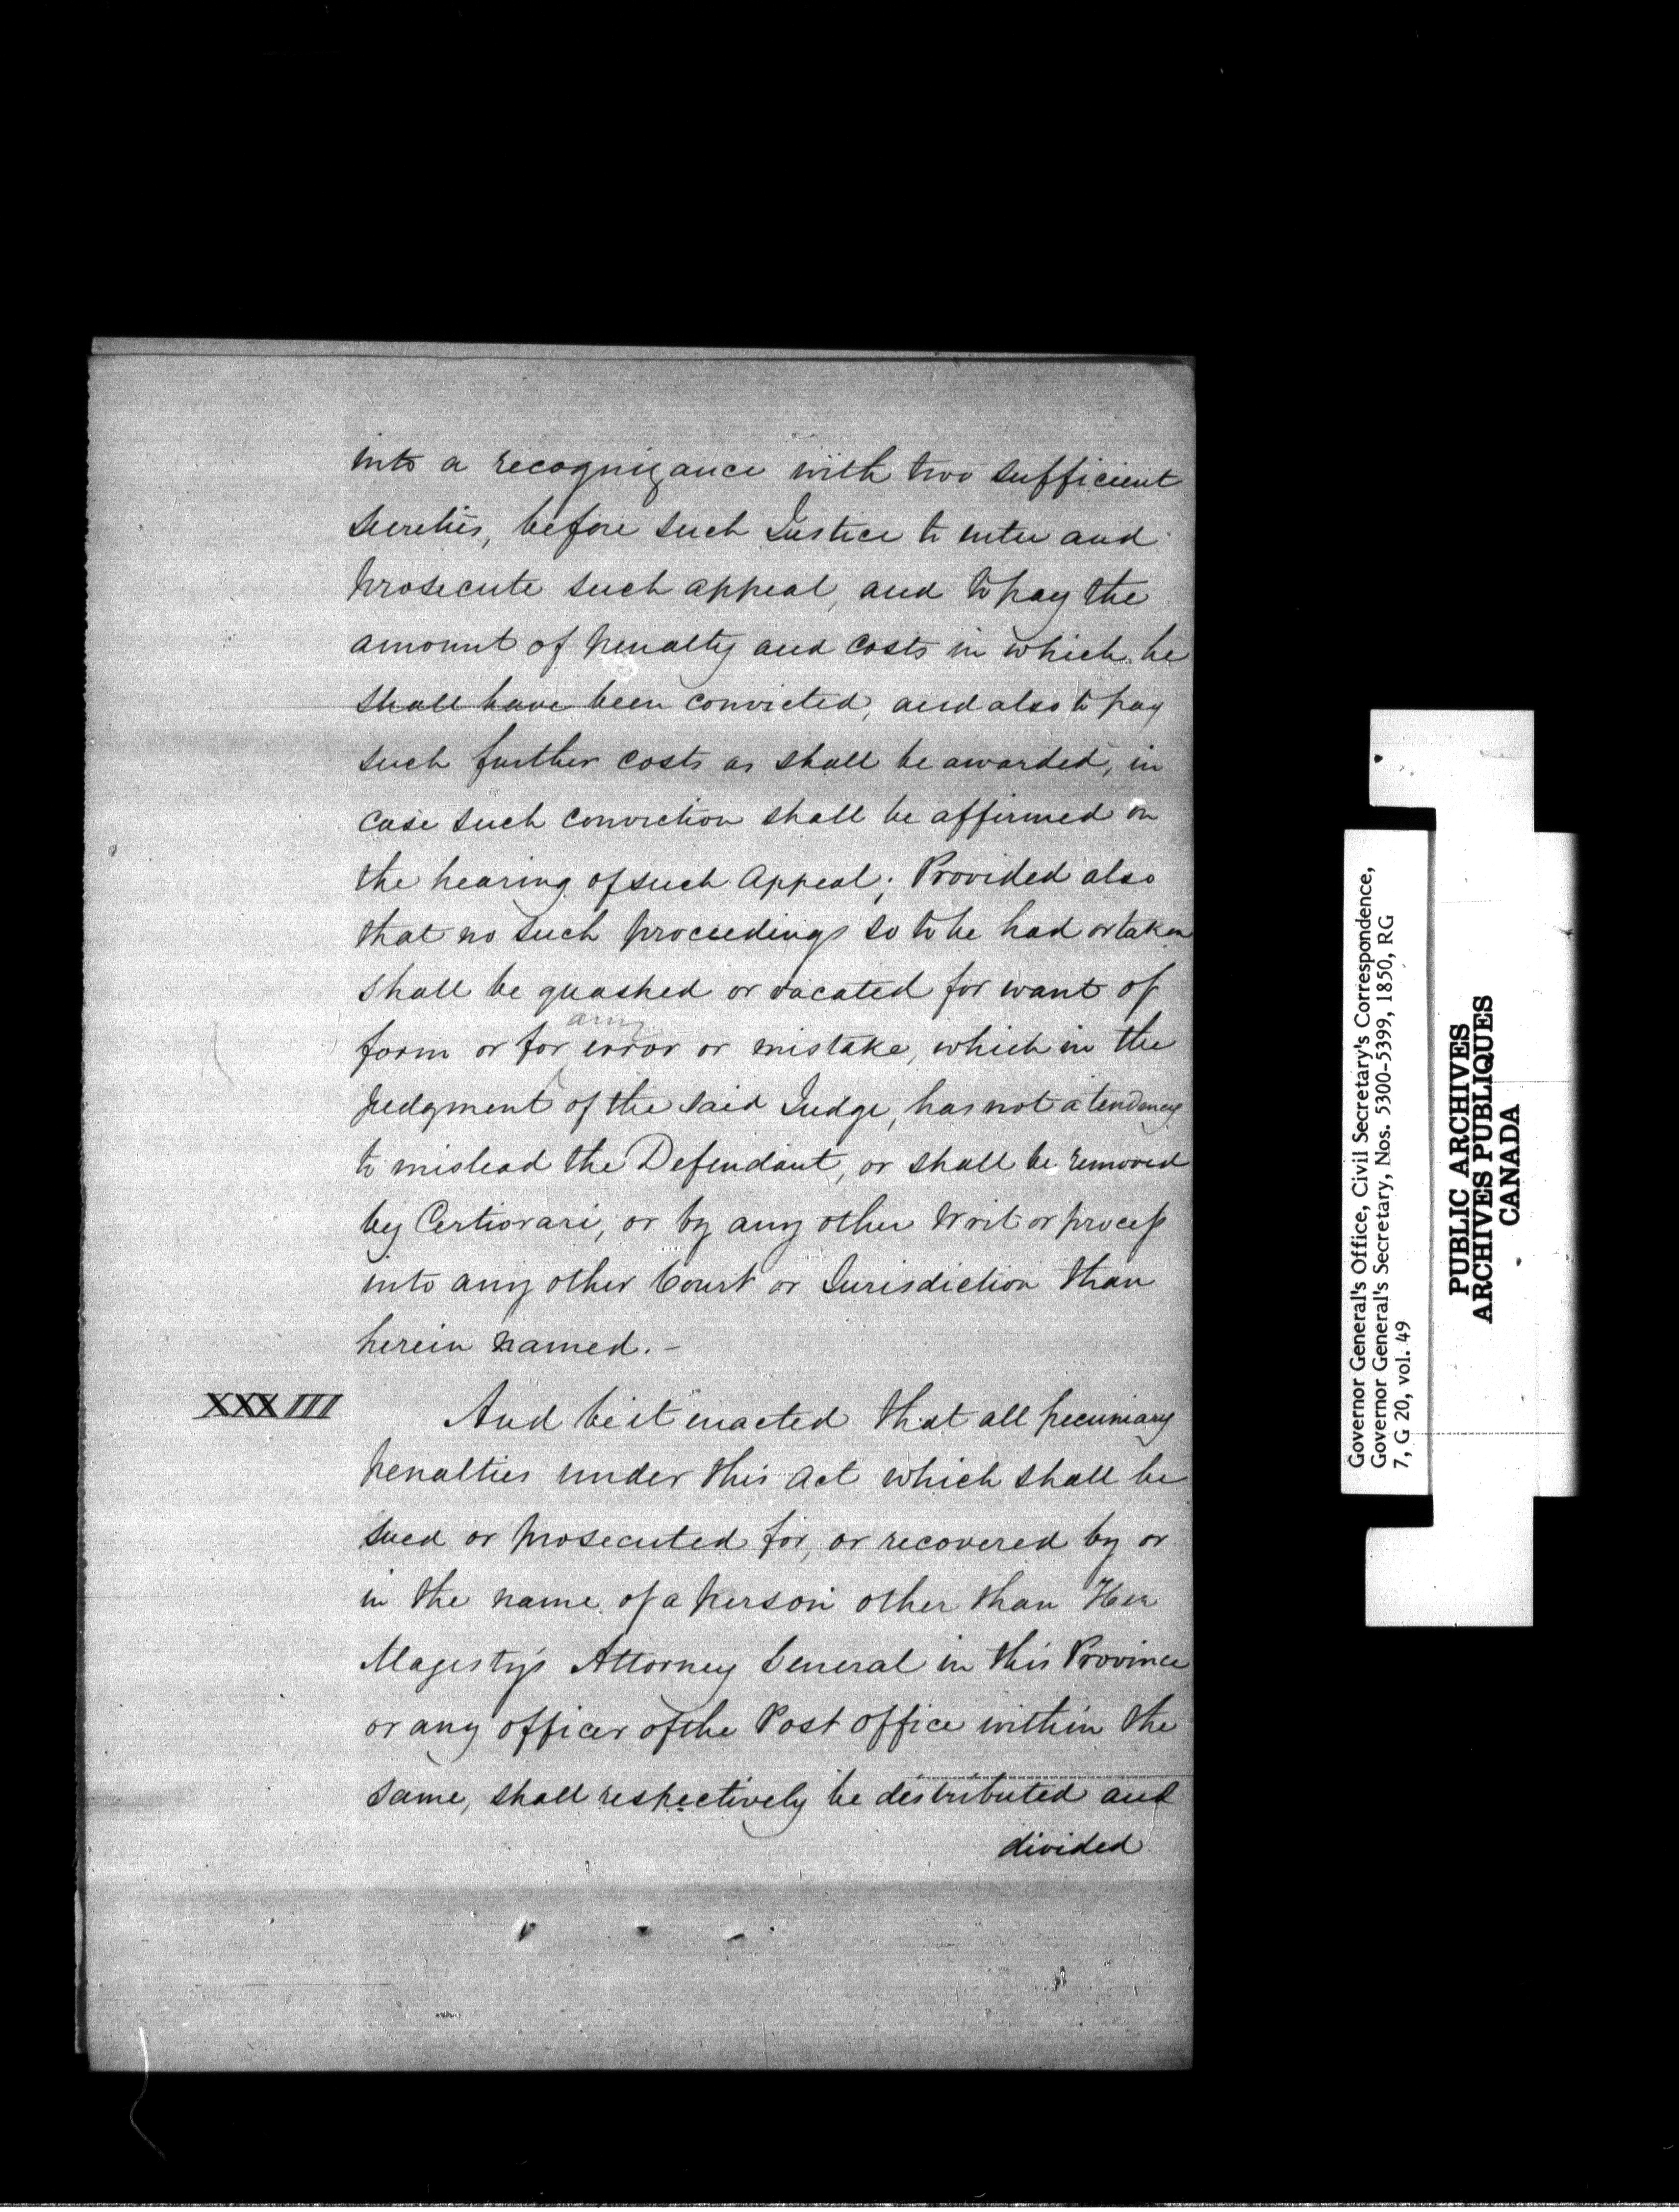 into a recognizance with two sufficient
sureties, before such Justice to enter and
prosecute such appeal, and to pay the
amount of penalty and costs in which he
shall have been convicted, and also to pay
such further costs as shall be awarded, in
case such conviction shall be affirmed on
the hearing of such Appeal; Provided also
that no such proceedings so to be had or taken
shall be quashed or vacated for want of
any
form or for error or mistake, which in the
judgment of the said Judge, has not a tendency
to mislead the Defendant, or shall be removed
by Certiorari, or by any other Writ or process
into any other Court or Jurisdiction than
herein named.-
XXXIII
And be it enacted that all pecuniary
penalties under this Act which shall be
sued or prosecuted for, or recovered by or
in the name of a person other than Her
Magesty's Attorney General in this Province
or any officer of the Post office within the
same, shall respectively be distributed and
divided
Governor General's Office, Civil Secretary's Correspondence,
Governor General's Secretary, Nos. 5300-5399, 1850, RG
7, G 20, vol. 49
PUBLIC ARCHIVES
ARCHIVES PUBLIQUES
CANADA